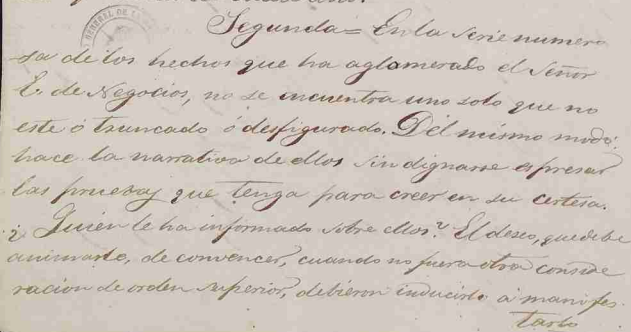 Segunda = En la serie numero
sa de los hechos que ha aglomerado el Señor
E. de Negocios, no se encuentra uno solo que no
este ó truncado ó desfigurado. Del mismo modo
hace la narrativa de ellos sin dignarse espresar
las pruebas que tenga para creer en su certesa.
¿Quién le ha informado sobre ellos? El deseo, que debe
animarlo, de convencer, cuando no fuera otra conside
racion de orden superior, debieron inducirlo á manifes
tarlo